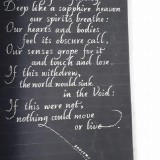 Deep like a sapphire heaven
our spirits breathe:
Our hearts and bodies
feel its obscure call,
Our senses grope for it
and touch and lose.
If this withdrew,
the world would sink
in the Void:
If this were not,
nothing could move
or live.